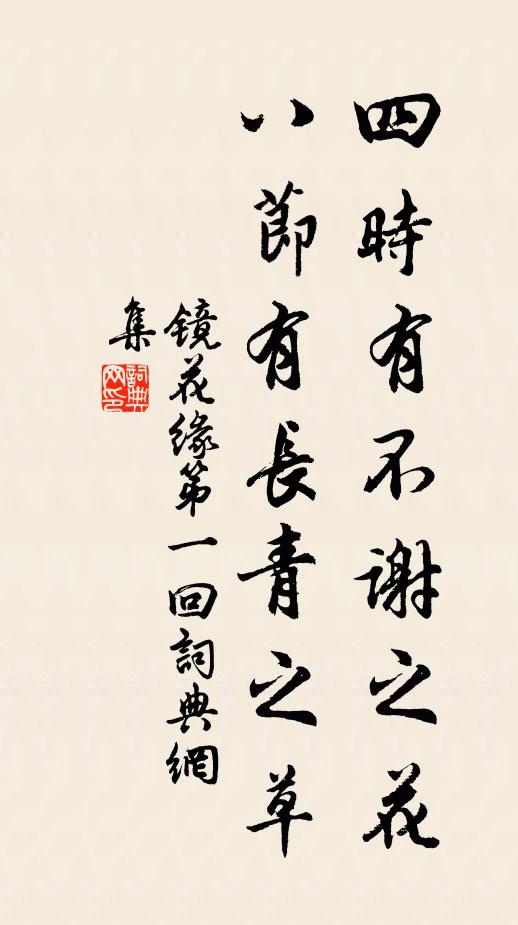 四時有不謝之花
八節有長青之草
鏡花緣第一回詞典網
集
詞典
网印